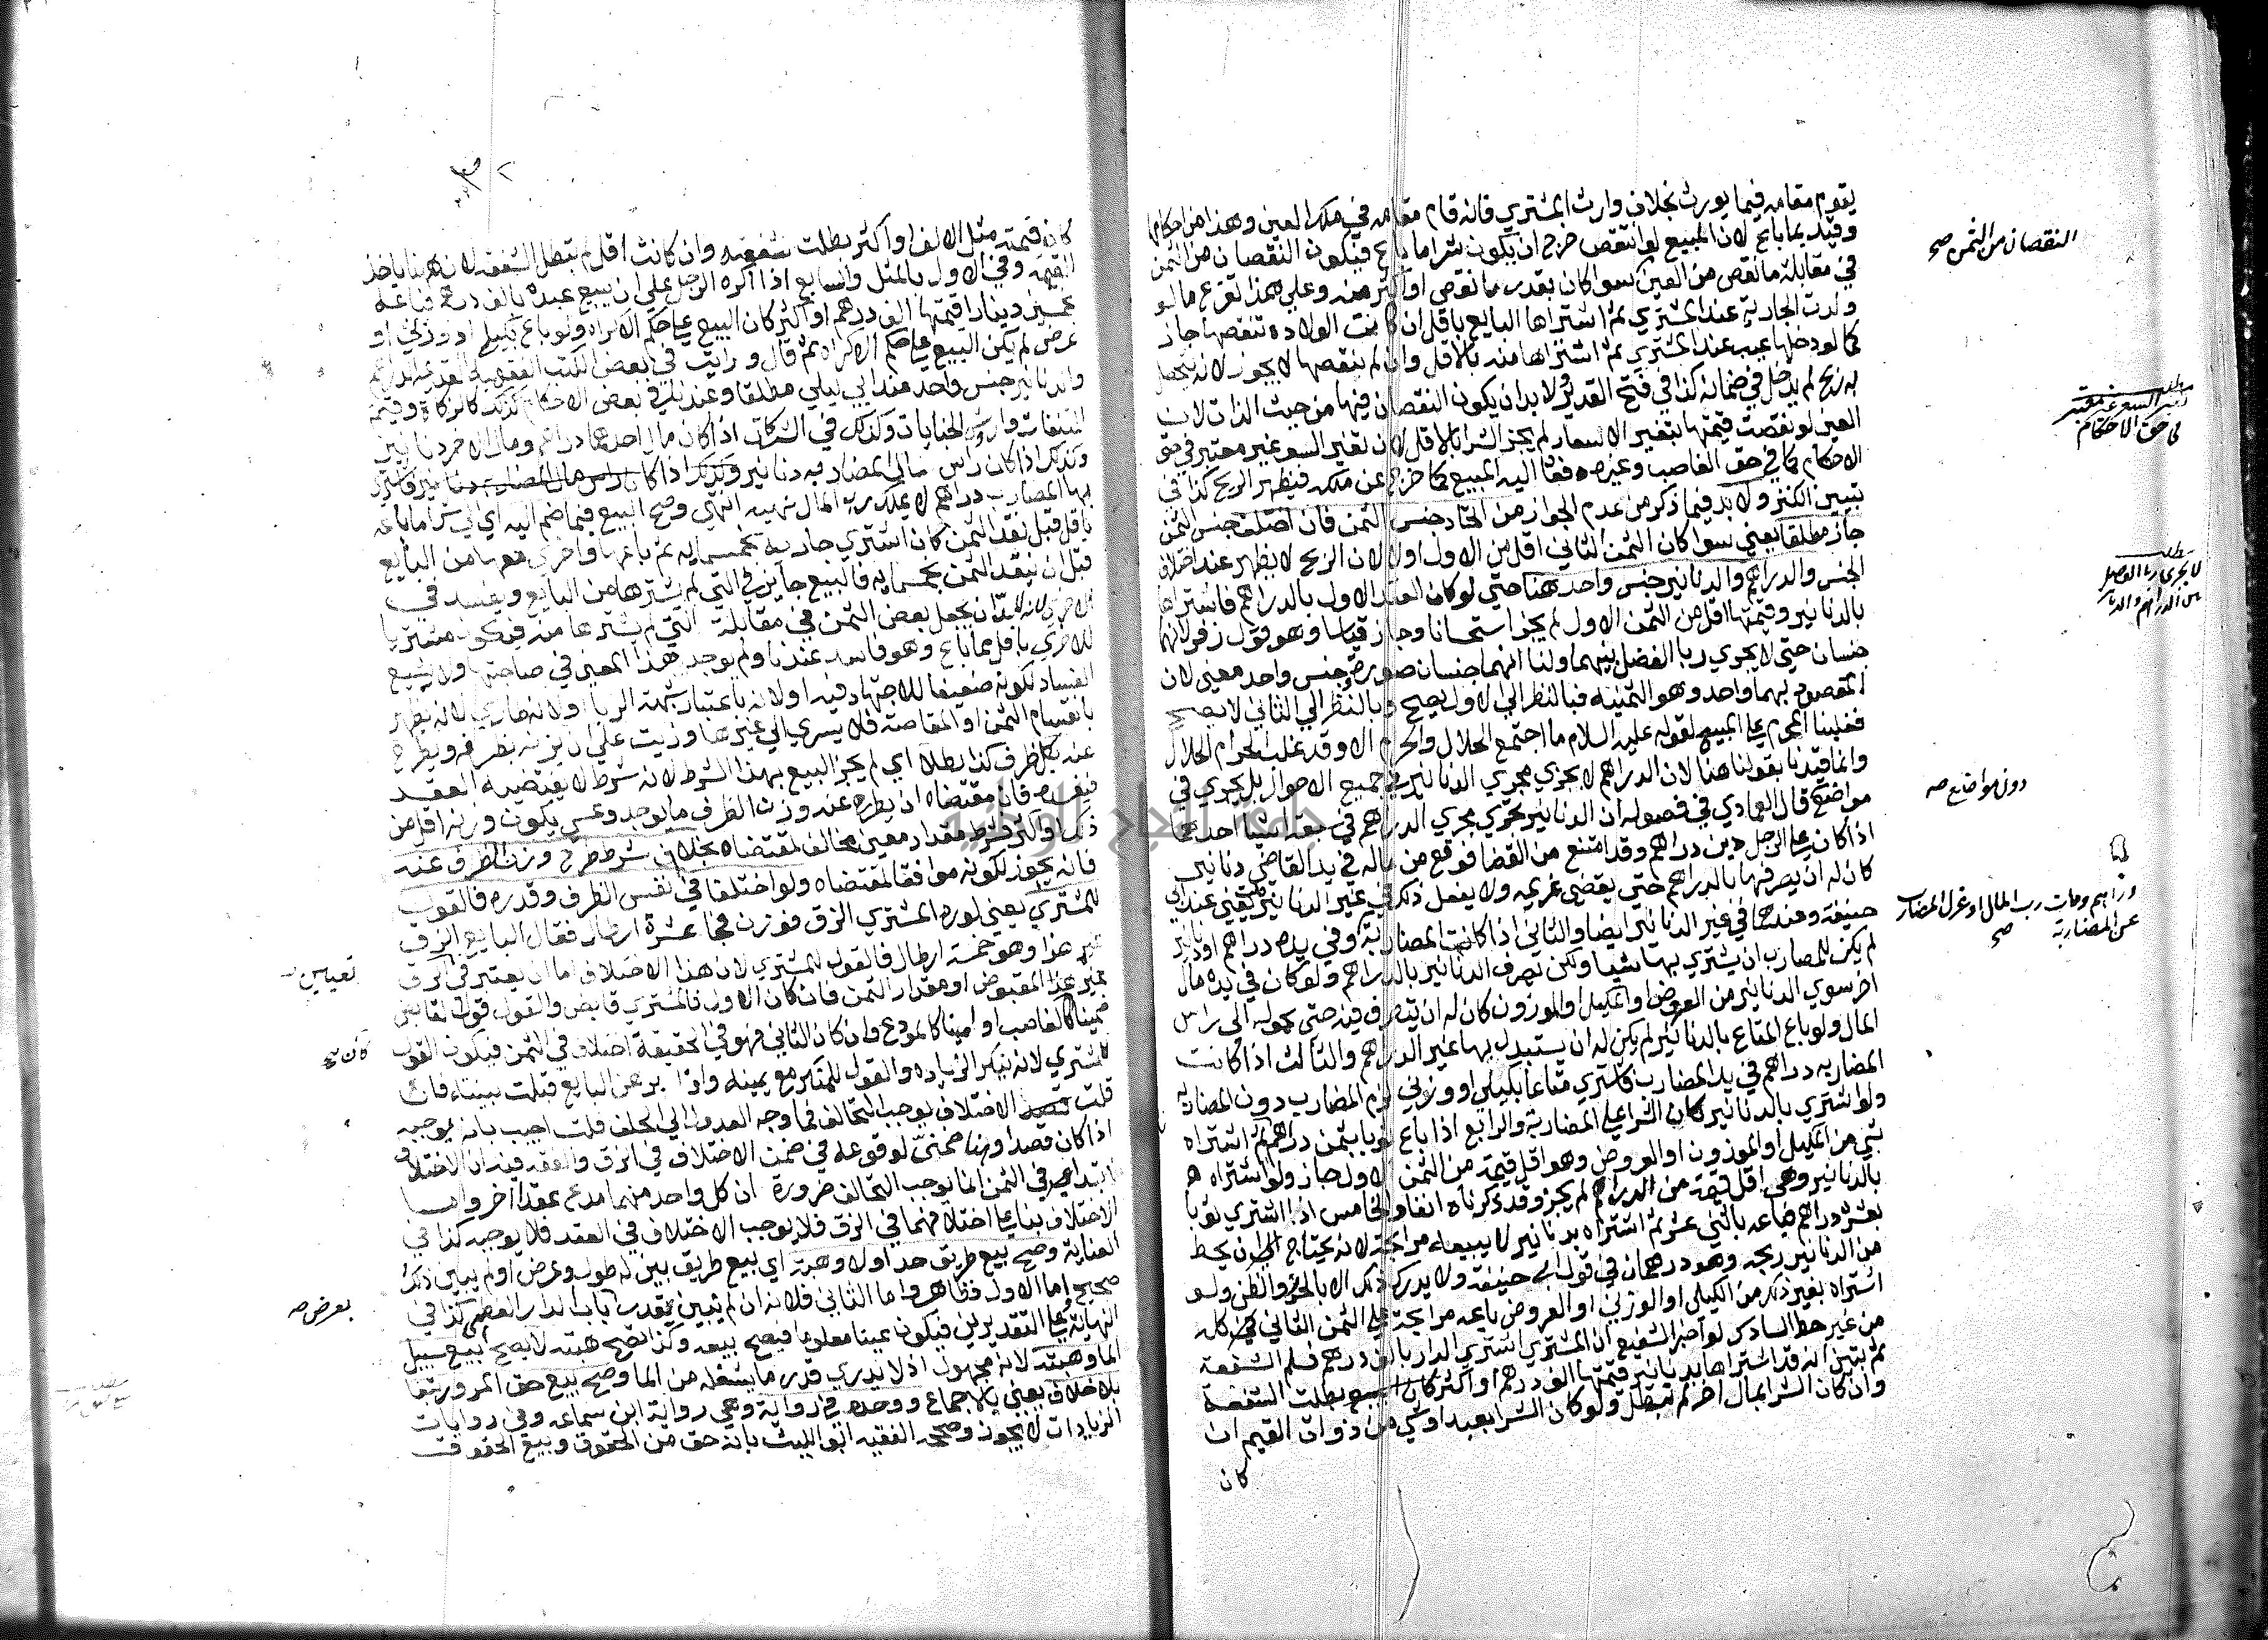 يقوم مقامه فيما يورث بخلاف وارث المشتري فانه قام مقامه في ملك العين وهذا من احكام
وقيد بما باع لان المبيع لو انتقص خرج ان يكون شرا ما باع فيكون النقصان من الثمن
النقصان من الثمن صح
في مقابلة ما نقص من العين سوا كان بقدر ما نقص او اكثر منه وعلى هذا تفرع ما لو
ولدت الجارية عند المشتري ثم اشتراها البايع باقل ان كانت الولادة تنقصها جاز
كما لو دخلها عيب عند المشتري ثم اشتراها منه بالاقل وان لم ينقصها لا يجوز لانه يحصل
به ربح لم يدخل في ضمانه كذا في فتح القدير ولا بد ان يكون النقصان فيها من حيث الذات لان
العين لو نقصت قيمتها بتغير الاسعار لم يجز الشرا بالاقل لان تغير السعر غير معتبر في حق
مطلب
تغير السعر غير معتبر
في حق الاحكام
الاحكام كما في حق الغاصب وغيره فعاد اليه المبيع كما خرج عن ملكه فيظهر الربح كذا في
تبيين الكنز ولا بد فيما ذكر من عدم الجواز من اتحاد جنس الثمن فان اختلف جنس الثمن
جاز مطلقا يعني سوا كان الثمن الثاني اقل من الاول اولا لان الربح لا يظهر عند اختلاف
الجنس والدراهم والدنانير جنس واحد هنا حتي لو كان العقد الاول بالدراهم فاشتراها
مطلب
لا يجري ربا الفضل
بين الدراهم والدنانير
بالدنانير وقيمتها اقل من الثمن الاول لم يجز استحسانا وجاز قياسا وهو قول زفر لانهما
جنسان حتي لا يجري ربا الفضل بينهما ولنا انهما جنسان صورة وجنس واحد معنى لان
المقصود بهما واحد وهو الثمنية فبالنظر الي الاول يصح وبالنظر الي الثاني لا يصح
فغلبنا المحرم على المبيح لقوله عليه السلام ما اجتمع الحلال والحرام الا وقد غلب الحرام الحلال
وانما قيدنا بقولنا هنا لان الدراهم لا يجري مجري الدنانير في جميع الاحوال بل يجري في
دون مواضع صح
مواضع قال العمادي في فصوله ان الدنانير تجري مجري الدراهم في سبعة اشيا احدها
اذا كان على الرجل دين دراهم وقد امتنع من القضا فوقع من ماله في يد القاضي دنانير
كان له ان يصرفها بالدراهم حتي يقضي غريمه ولا يفعل ذلك في غير الدنانير يعني عند ابي
حنيفة وعندهما في غير الدنانير ايضا والثاني اذا كانت المضاربة وفي يده دراهم او دنانير
دراهم ومات رب المال او عزل المضارب
عن المضاربة
صح
لم يكن للمضارب ان يشتري بها شيئا ولكن يصرف الدنانير بالدراهم ولو كان في يده مال
اخر سوي الدنانير من العروض او المكيل او الموزون كان له ان يتصرف فيه حتي يحوله الي راس
المال ولو باع المتاع بالدنانير لم يكن له ان يستبدل بها غير الدراهم والثالث اذا كانت
المضاربه دراهم في يد المضارب فاشتري متاعا بكيلي او وزني لزم المضارب دون المضاربه
ولو اشتري بالدنانير كان الشرا على المضاربة والرابع اذا باع ثوبا بثمن دراهم ثم اشتراه
بشي من المكيل او الموزون او العروض وهو اقل قيمة من الثمن الاول جاز ولو اشتراه
بالدنانير وهي اقل قيمة من الدراهم لم يجز وقد ذكرناه انفا والخامس اذا اشتري ثوبا
بعشرة دراهم فباعه باثني عشر ثم اشتراه بدنانير لا يبيعه مرابحة لانه يحتاج الي ان يحط
من الدنانير ربحه وهو درهمان في قول ابي حنيفة ولا يدرك ذلك الا بالحزر والظن ولو
اشتراه بغير ذلك من الكيلي او الوزني او العروض باعه مرابحة على الثمن الثاني كله
من غير حط السادس لو اخبر الشفيع ان المشتري اشتري الدار بالف درهم فسلم الشفعة
ثم تبين انه قد اشتراها بدنانير قيمتها الف درهم او اكثر كان بطلت الشفعة
وان كان الشرا بمال اخر لم تبطل ولو كان الشرا بعبد او شي من ذوات القيم ان
كان
كان قيمته مثل الالف او اكثر بطلت شفعته وان كانت اقل لم تبطل الشفعة لان هنا ياخذ
القيمة وفي الاول بالمثل والسابع اذا اكره الرجل علي ان يبيع عبده بالف درهم فباعه
بخمسين دينارا قيمتها الف درهم او اكثر كان البيع على حكم الاكراه ولو باع بكيلي او وزني او
عرض لم يكن البيع على حكم الاكراه ثم قال ورايت في بعض الكتب الفقهية القديمة الدراهم
والدنانير جنس واحد عند ابي ليلي مطلقا وعندنا في بعض الاحكام كذلك كالزكاة وقيم
المتلفات واروش الجنايات وكذلك في الشركات اذا كان مال احدهما دراهم ومال الاخر دنانير
وكذلك اذا كان راس مال المضاربه دنانير وكذلك اذا كان راس مال المضاربه دنانير فاشتري
بها المضارب دراهم لا يملك رب المال نهيه انتهي وصح البيع فيما ضم اليه اي الي شرا ما باعه
باقل قبل نقد الثمن كان اشتري جارية بخمسمايه ثم باعها واخري معها من البايع
قبل ان ينقد الثمن بخمسمايه فالبيع جايز في التي لم يشترها من البايع ويفسد في
الاخري لانه لابد ان يجعل بعض الثمن في مقابلة التي لم يشترها منه فيكون مشتريا
للاخري باقل مما باع وهو فاسد عندنا ولم يوجد هذا المعني في صاحبتها ولا يشيع
الفساد لكونه ضعيفا للاجتهاد فيه او لانه باعتبار شبهة الربا او لانه طاري لانه يظهر
بانقسام الثمن او المقاصة فلا يسري الي غيرها وزيت علي ان يزنه بظرفه ويطرح
عنه بكل ظرف كذا رطلا اي لم يجز البيع بهذا الشرط لانه شرط لا يقتضيه العقد
فيفسده فان مقتضاه ان يطرح عنه وزن الظرف ما يوجد وعسي يكون وزنه اقل من
ذلك او اكثر فشرط مقدار معين مخالف لمقتضاه بخلاف شرط طرح وزن الظرف عنه
فانه يجوز لكونه موافقا لمقتضاه ولو اختلفا في نفس الظرف وقدره فالقول
للمشتري يعني لو رد المشتري الزق فوزن فجا عشرة ارطال فقال البايع الزق
غير هذا وهو خمسة ارطال فالقول للمشتري لان هذا الاختلاف اما ان يعتبر في الزق
تعيين
المقبوض او مقدار الثمن فان كان الاول فالمشتري قابض والقول قول القابض
ضمينا كالغاصب او امينا كالمودع وان كان الثاني فهو في الحقيقة اختلاف في الثمن فيكون القول
كان صح
للمشتري لانه ينكر الزياده والقول للمنكر مع يمينه واذا برهن البايع قبلت بينته فان
قلت الاختلاف يوجب التحالف فما وجه العدول الي الحلف قلت اجيب بانه يوجبه
اذا كان قصدا وهنا ضمني لوقوعه في ضمن الاختلاف في الزق والفقه فيه ان الاختلاف
ابتداء في الثمن انما يوجب التحالف ضرورة ان كل واحد منهما مدع عقدا اخر واما
الاختلاف بناء على اختلافهما في الزق فلا يوجب الاختلاف في العقد فلا يوجبه كذا في
العناية وصح بيع طريق حد اولا وهبته اي بيع طريق بين له طول وعرض او لم يبين ذلك
صحيح اما الاول فظاهر واما الثاني فلانه ان لم يبين يقدر باب الدار العظمي كذا في
بعرض صح
النهاية وعلى التقديرين فيكون عينا معلوما فيصح بيعه وكذا تصح هبته لا يصح بيع مسيل
الما وهبته لانه مجهول اذ لا يدري قدر ما يشغله من الما وصح بيع حق المرور تبعا
بلا خلاف يعني بالاجماع ووحده في رواية وهي رواية ابن سماعه وفي روايات
الزيادات لا يجوز وصححه الفقيه ابو الليث بانه حق من الحقوق وبيع الحقوق
جامعة النجاح الوطنية